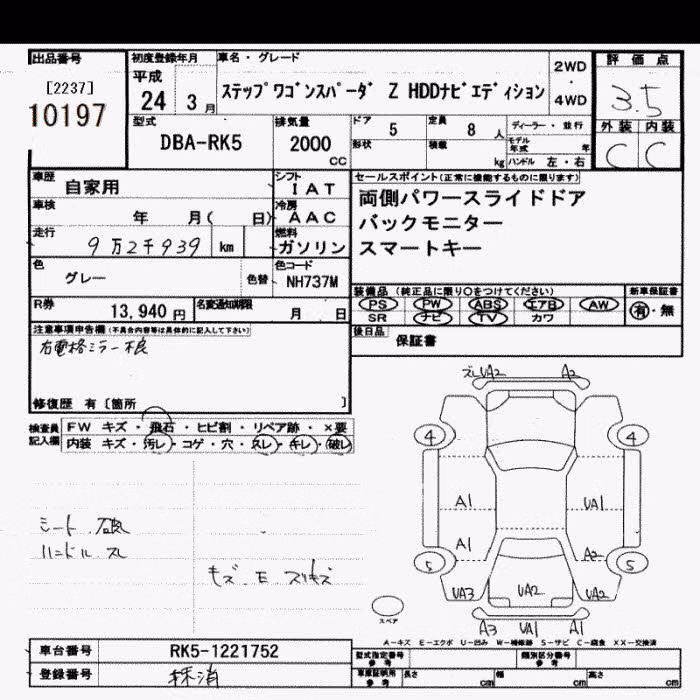 出品番号
[2237]
10197
初度登録年月
平成
24 3月
車名・グレード
ステップワゴンスパーダ Z HDDナビエディション
2WD
・
4WD
評価点
3.5
外装 内装
C C
型式
DBA-RK5
排気量
2000
CC
ドア 5
定員 8 人
ディーラー・並行
形状
積載 kg
モデル年式 年
ハンドル 左・右
車歴
自家用
車検
年 月( 日)
走行
9万2千939 km
色
グレー
色替
シフト
I A T
冷房
A A C
燃料
ガソリン
色コード
NH737M
セールスポイント(正常に機能するものに限ります)
両側パワースライドドア
バックモニター
スマートキー
R券
13,940 円
名変通知期限
月 日
装備品 (純正品に限り○をつけてください)
新車保証書
PS PW ABS エアB AW
SR ナビ TV カワ
有・無
後日品
保証書
注意事項申告欄(不具合内容等は具体的に記入して下さい)
右電格ミラー不良
修復歴 有 [箇所 ]
検査員
記入欄
FW キズ・飛石・ヒビ割・リペア跡・×要
内装 キズ・汚レ・コゲ・穴・スレ・キレ・破レ
ズレ UA2 A2
4 4
A1 UA1
A1 A2
5 5
UA3 UA2 UA2
A3 UA1 A1
スペア
ハンドル スレ
キズ E スリキズ
A-キズ E-エクボ U-凹み W-補修跡 S-サビ C-腐食 XX-交換済
車台番号
RK5-1221752
登録番号
抹消
型式指定番号
参考
類別区分番号
参考
車庫証明用
参考
長さ cm
幅 cm
高さ cm